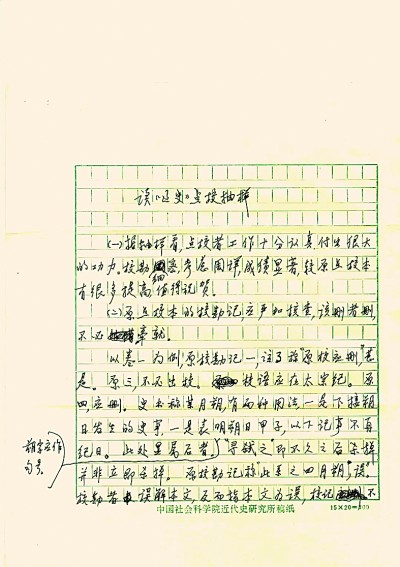 读《辽史》点校抽样
(一)据抽样看，点校者工作十分认真付出很大
的功力。校勘细密，考虑周详成绩显著，较原点校本
有很多提高，值得记贺。
(二)原点校本的校勘记，应严加检查，该删者删，
不必牵就。
以卷一为例，原校勘记一，注了话“原校应删”甚
是。原三，不必出校。校语应在太宗纪。原
四应删。史书称某月朔，有两种用法，一是下接朔
日发生的史事，一是表明朔日甲子，以下记事不再
纪日。此处显属后者，“寻弑之”即不久之后杀辖
并非立即杀辖。原校勘记称“此系之四月朔，误”。
校勘者误解本文，反而指本文为误，校记不
朔字应作
句号。
中国社会科学院近代史研究所稿纸
15×20=300